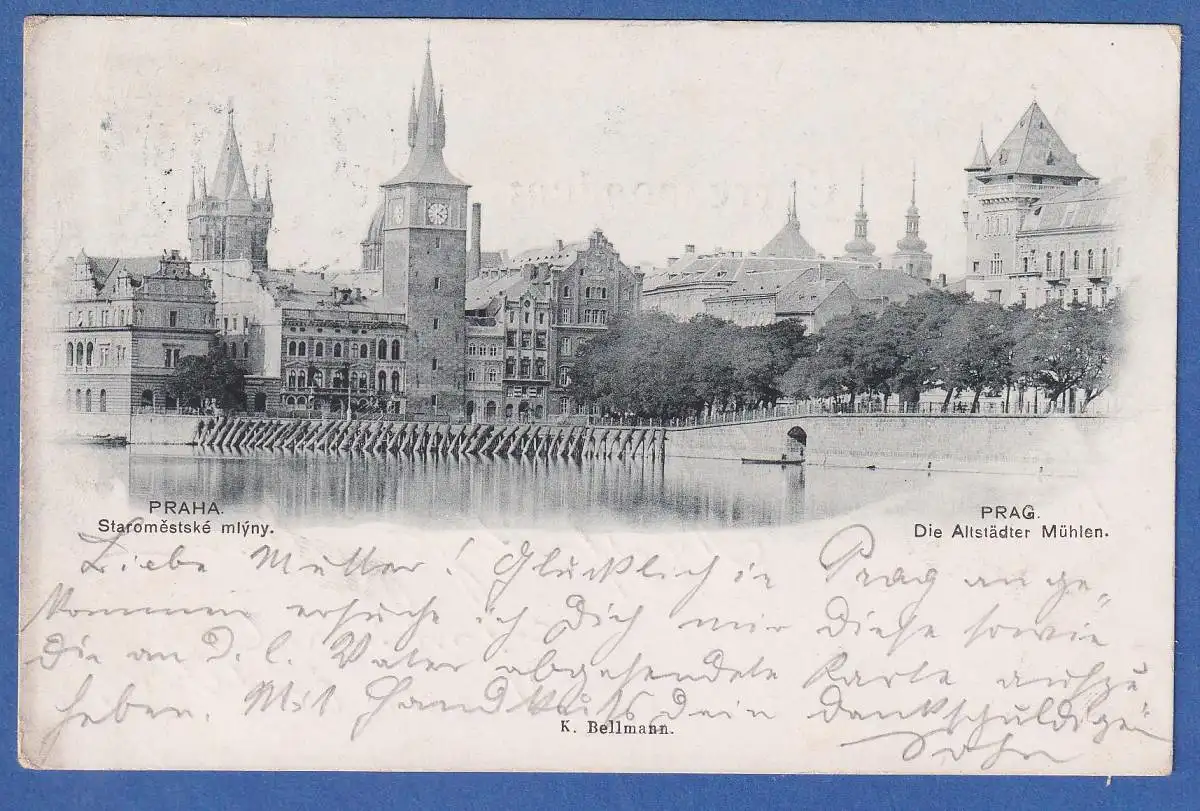 PRAHA.
Staroměstské mlýny.
PRAG.
Die Altstädter Mühlen.
Liebe Mutter! Glücklich in Prag ange-
kommen ersuche ich Dich mir diese sowie
die an D. l. Vater abgesendete Karte aufzu
heben. Mit Handkuß dein dankschuldiger
Sohn
K. Bellmann.